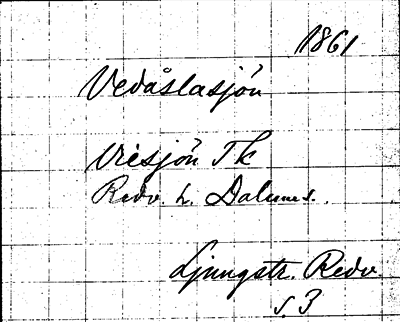 1861
Vedåslasjön
Vresjön Tk
Redv. h. Dalums.
Ljungstr. Redv.
s. 3